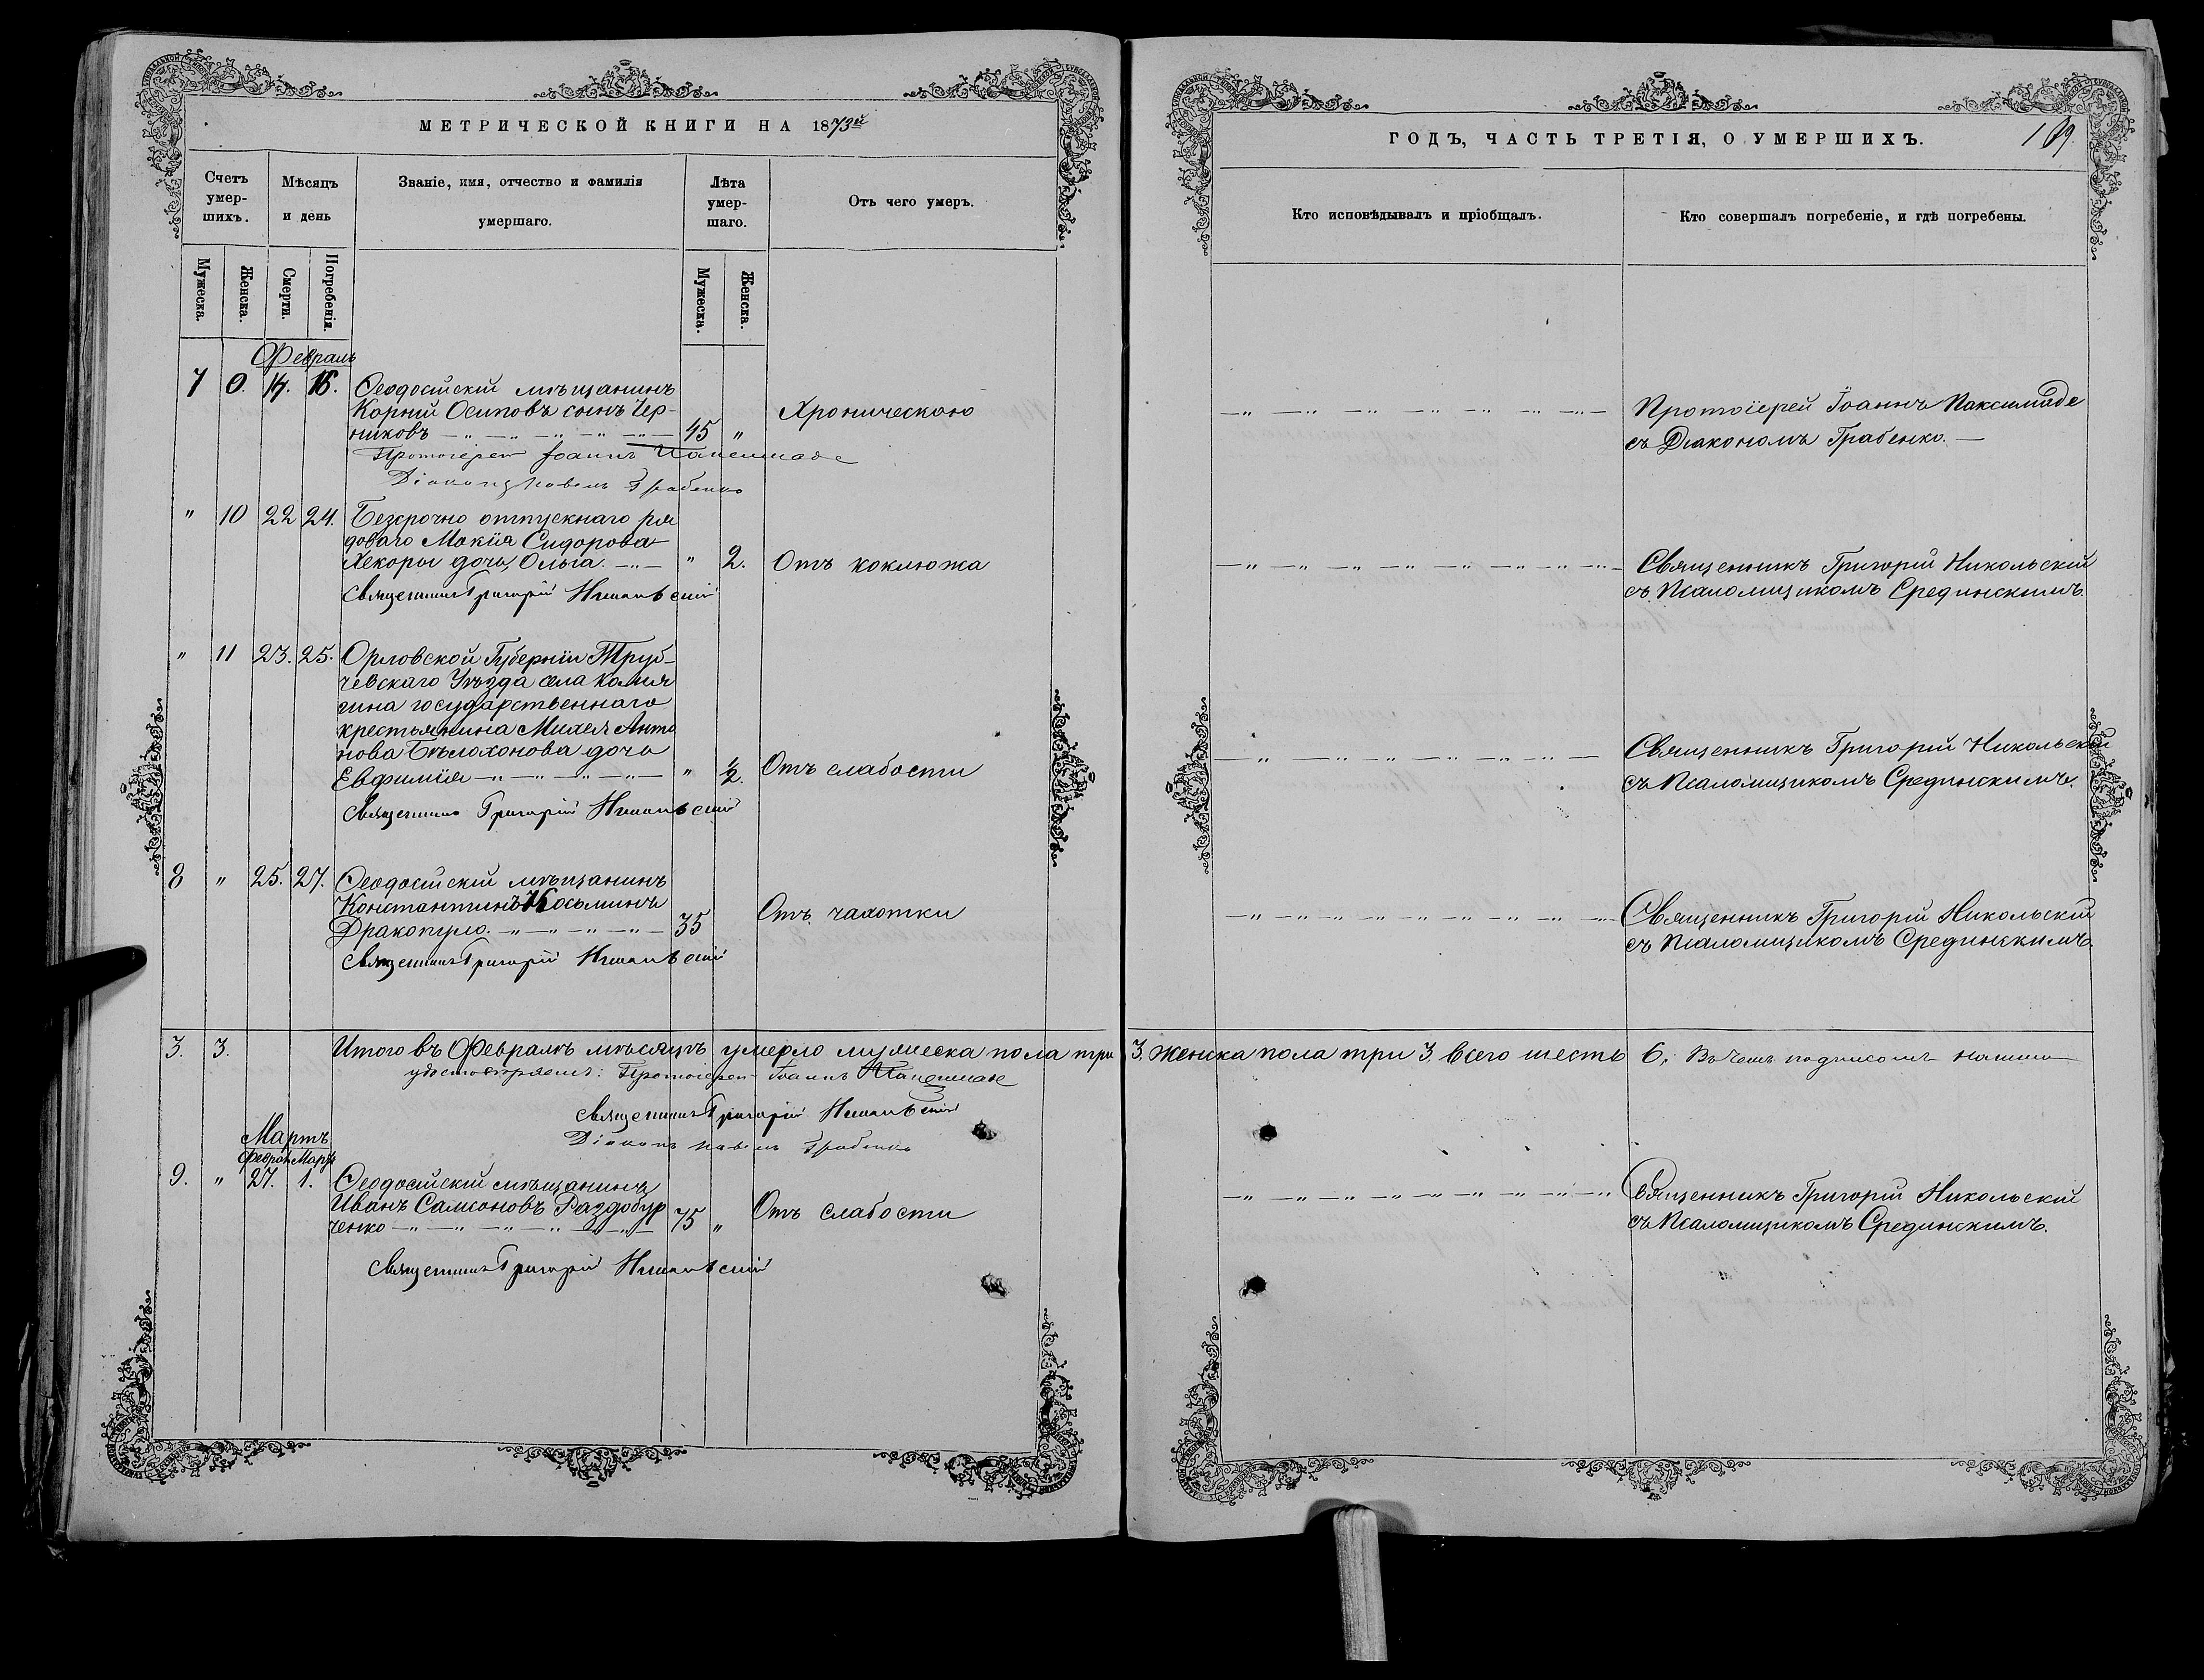 МЕТРИЧЕСКОЙ КНИГИ НА 1873й
Счетъ умер-шихъ.
Мѣсяцъ и день
Званіе, имя, отчество и фамилія умершаго.
Лѣта умер-шаго.
Отъ чего умеръ.
Мужеска.
Женска.
Смерти.
Погребенія.
Мужеска.
Женска.
Февраль
7 0. 14. 16. Ѳеодосійскій мѣщанинъ
Корній Осиповъ сынъ Чер-
никовъ 45 " Хроническою
Протоіерей Іоаннъ
Діаконъ Павелъ Грабенко
" 10 22 24. Безсрочно отпускнаго ря
доваго Мокія Сидорова
Хекоры дочь, Ольга. " 2. Отъ коклюжа
Священникъ Григорій Никольскій
" 11 23. 25. Орловской Губерніи Труб-
чевскаго Уѣзда села Коми
гина государственнаго
крестьянина Михея Анто
нова Бѣлохонова дочь
Евфимія " 1/2. Отъ слабости
Священникъ Григорій Никольскій
8 " 25. 27. Ѳеодосійскій мѣщанинъ
Константинъ Косьминъ
Дракопуло. 35 Отъ чахотки
Священникъ Григорій Никольскій
3. 3. Итого въ Февралѣ мѣсяцѣ умерло мужеска пола три
удостовѣряемъ: Протоіерей Іоаннъ
Священникъ Григорій Никольскій
Діаконъ Павелъ Грабенко
Мартъ
Февраль Мартъ
9. " 27. 1. Ѳеодосійскій мѣщанинъ
Иванъ Самсоновъ Раздобур
ченко 75 " Отъ слабости
Священникъ Григорій Никольскій
ГОДЪ, ЧАСТЬ ТРЕТІЯ, О УМЕРШИХЪ.
Кто исповѣдывалъ и пріобщалъ.
Кто совершалъ погребеніе, и гдѣ погребены.
Протоіерей Іоаннъ
съ Діакономъ Грабенко.
Священникъ Григорій Никольскій
съ Псаломщикомъ Срединскимъ.
Священникъ Григорій Никольскій
съ Псаломщикомъ Срединскимъ.
Священникъ Григорій Никольскій
съ Псаломщикомъ Срединскимъ.
3. женска пола три 3. всего шесть 6, Въ чемъ подписомъ нашимъ
Священникъ Григорій Никольскій
съ Псаломщикомъ Срединскимъ.